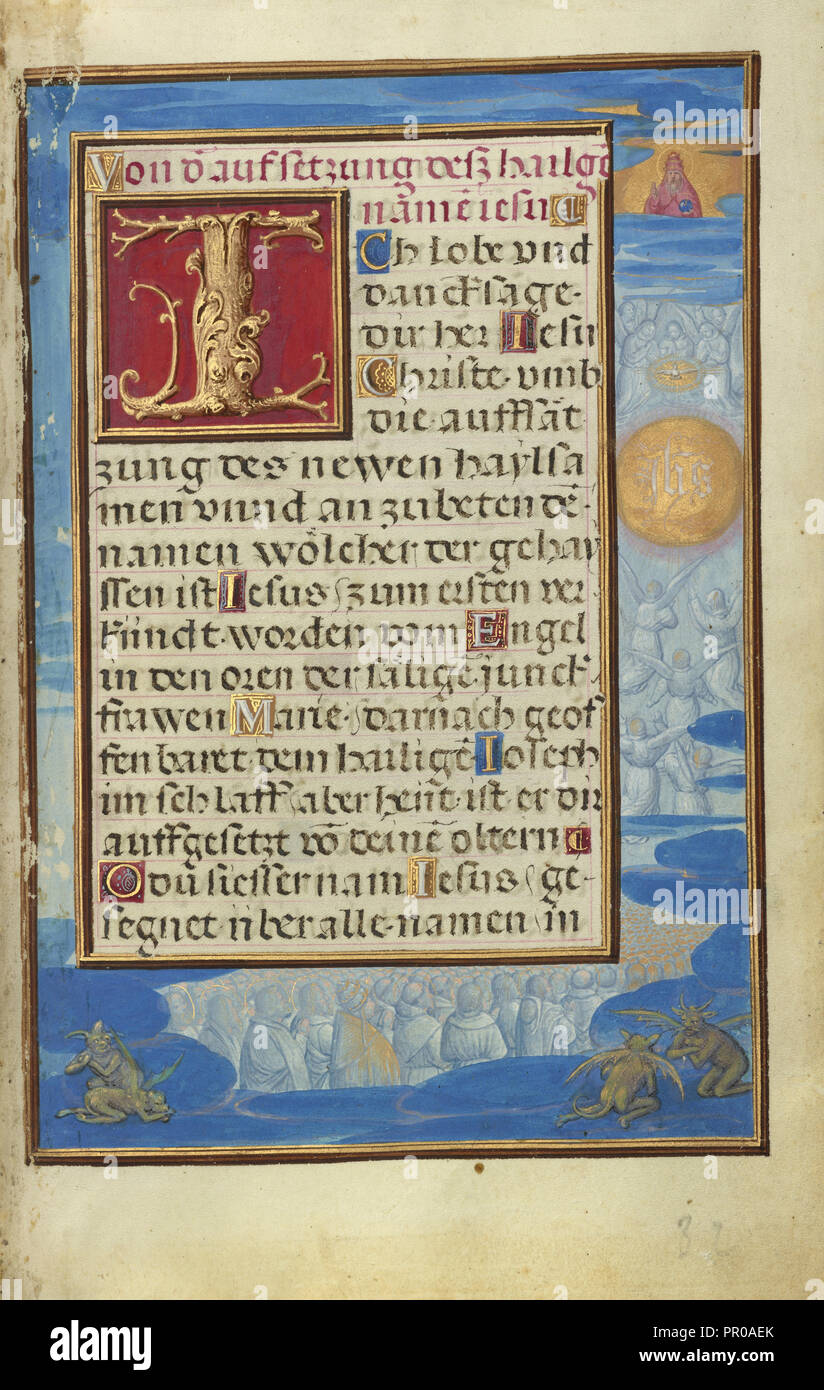 Von d̄ aufsetzung desz hailgē
namē iesu C
I
Ch lobe vnd
dancksage·
dir her Iesu
Christe· vmb
die· auffsät
zung des newen haÿlsa
men vnnd an zu beten dē·
namen wölcher der gehay
ssen ist Iesus / zum ersten ver
kündt· worden vom Engel
in den oren der säligē junck
frawen Marie· / darnach geof
fenbaret dem hailigē Ioseph
im schlaff / aber heüt· ist er dir
auffgesetzt vō deinē öltern C
O dū siesser nam Iesus / ge-
segnet über alle· namen / in
jhs
32
alamy
Image ID: PR0AEK
www.alamy.com